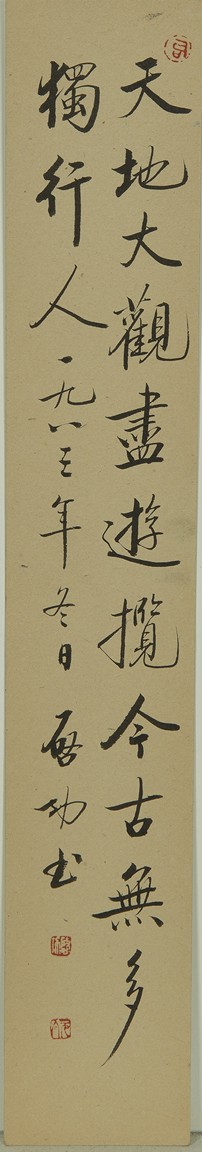 天地大觀盡遊攬今古無多
獨行人一九八三年冬日啓功书